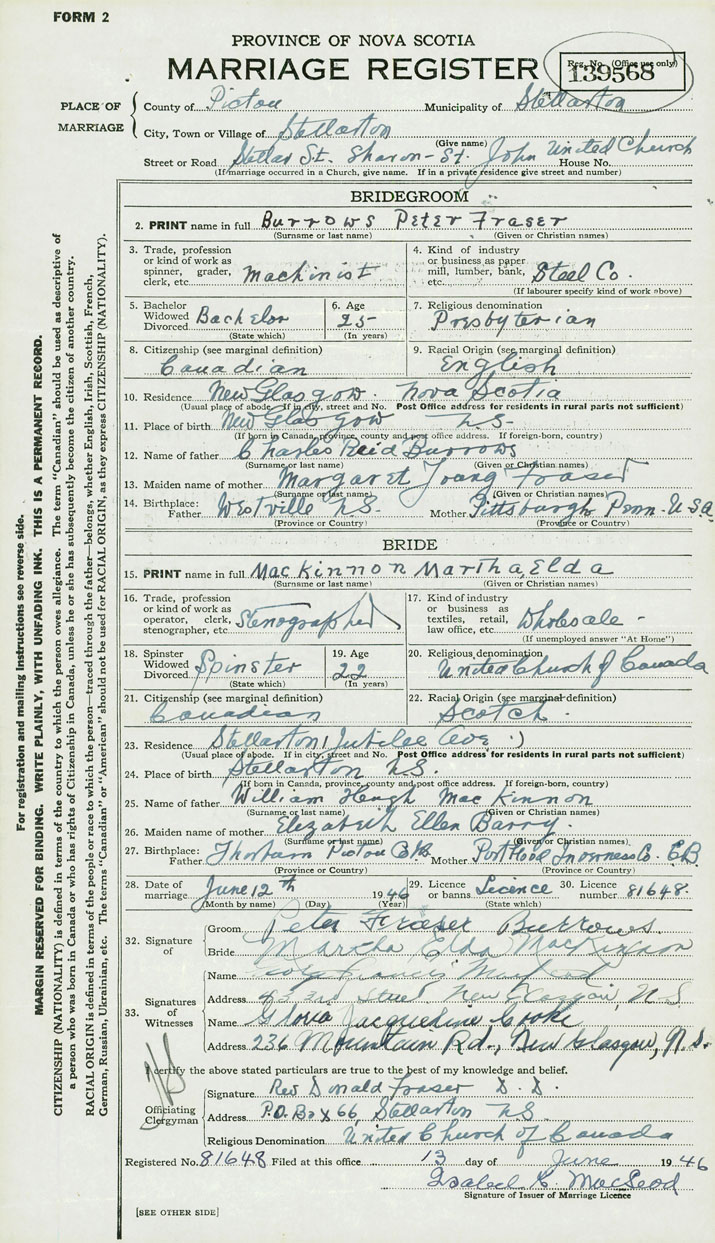 FORM 2
PROVINCE OF NOVA SCOTIA
MARRIAGE REGISTER
Reg. No. (Office use only)
139568
PLACE OF MARRIAGE
County of Pictou Municipality of Stellarton
City, Town or Village of Stellarton
(Give name)
Street or Road Stellar St. Sharon-St. John United Church House No.
(If marriage occurred in a Church, give name. If in a private residence give street and number)
BRIDEGROOM
2. PRINT name in full Burrows Peter Fraser
(Surname or last name) (Given or Christian names)
3. Trade, profession or kind of work as spinner, grader, clerk, etc. Machinist
4. Kind of industry or business as paper mill, lumber, bank, etc. Steel Co.
(If labourer specify kind of work above)
5. Bachelor Widowed Divorced Bachelor
(State which)
6. Age 25
(In years)
7. Religious denomination
Presbyterian
8. Citizenship (see marginal definition)
Canadian
9. Racial Origin (see marginal definition)
English
10. Residence New Glasgow. Nova Scotia
(Usual place of abode. If in city, street and No. Post Office address for residents in rural parts not sufficient)
11. Place of birth New Glasgow N.S.
(If born in Canada, province, county and post office address. If foreign-born, country)
12. Name of father Charles Reid Burrows
(Surname or last name) (Given or Christian names)
13. Maiden name of mother Margaret Young Fraser
(Surname or last name) (Given or Christian names)
14. Birthplace: Father Westville N.S. Mother Pittsburgh Penn. U.S.A
(Province or Country) (Province or Country)
BRIDE
15. PRINT name in full MacKinnon Martha, Elda
(Surname or last name) (Given or Christian names)
16. Trade, profession or kind of work as operator, clerk, stenographer, etc. Stenographer
17. Kind of industry or business as textiles, retail, law office, etc. Wholesale -
(If unemployed answer "At Home")
18. Spinster Widowed Divorced Spinster
(State which)
19. Age 22
(In years)
20. Religious denomination
United Church of Canada
21. Citizenship (see marginal definition)
Canadian
22. Racial Origin (see marginal definition)
Scotch.
23. Residence Stellarton (Jubilee Ave.)
(Usual place of abode. If in city, street and No. Post Office address for residents in rural parts not sufficient)
24. Place of birth Stellarton N.S.
(If born in Canada, province, county and post office address. If foreign-born, country)
25. Name of father William Hugh MacKinnon
(Surname or last name) (Given or Christian names)
26. Maiden name of mother Elizabeth Ellen Barry.
(Surname or last name) (Given or Christian names)
27. Birthplace: Father Thorburn Pictou Co. N.S. Mother Port Hood Inverness Co. C.B.
(Province or Country) (Province or Country)
28. Date of marriage June 12th 1946
(Month by name) (Day) (Year)
29. Licence or banns Licence
(State which)
30. Licence number 81648.
32. Signature of
Groom Peter Fraser Burrows.
Bride Martha Elda MacKinnon
33. Signatures of Witnesses
Name Francis
Address 3rd Street New Glasgow, N.S
Name Gloria Jacqueline Cooke
Address 236 Mountain Rd., New Glasgow, N.S.
I certify the above stated particulars are true to the best of my knowledge and belief.
Officiating Clergyman
Signature Rev Donald Fraser D.D.
Address P.O. Box 66, Stellarton N.S
Religious Denomination United Church of Canada
Registered No. 81648 Filed at this office 13 day of June 1946
Isabel G. MacLeod
Signature of Issuer of Marriage Licence
[SEE OTHER SIDE]
For registration and mailing instructions see reverse side.
MARGIN RESERVED FOR BINDING. WRITE PLAINLY, WITH UNFADING INK. THIS IS A PERMANENT RECORD.
CITIZENSHIP (NATIONALITY) is defined in terms of the country to which the person owes allegiance. The term "Canadian" should be used as descriptive of
a person who was born in Canada or who has rights of Citizenship in Canada, unless he or she has subsequently become the citizen of another country.
RACIAL ORIGIN is defined in terms of the people or race to which the person—traced through the father—belongs, whether English, Irish, Scottish, French,
German, Russian, Ukrainian, etc. The terms "Canadian" or "American" should not be used for RACIAL ORIGIN, as they express CITIZENSHIP (NATIONALITY).